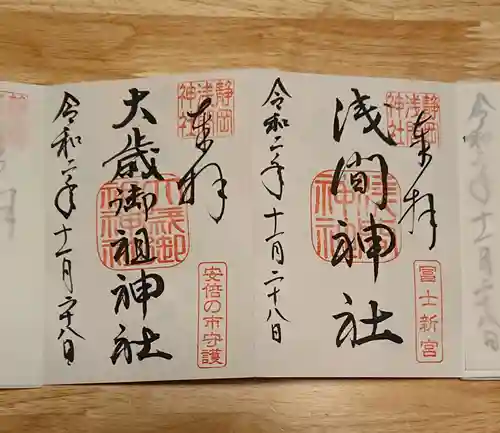 奉拝
静岡
浅間
神社
浅間神社
冨士新宮
令和二年十一月二十八日
奉拝
静岡
浅間
神社
大歳御祖神社
安倍の市守護
令和二年十一月二十八日